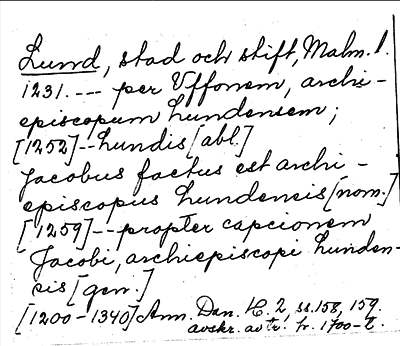 Lund, stad och stift, Malm. l.
1231. --- per Uffonem, archi-
episcopum Lundensem;
[1252]-- Lundis [abl.]
Jacobus factus est archi-
episcopus Lundensis [nom.]
[1259]-- propter capcionem
Jacobi, archiepiscopi Lunden-
sis [gen.]
[1200-1340] Ann. Dan. H. 2, ss. 158, 159.
avskr. av tr. fr. 1700-t.